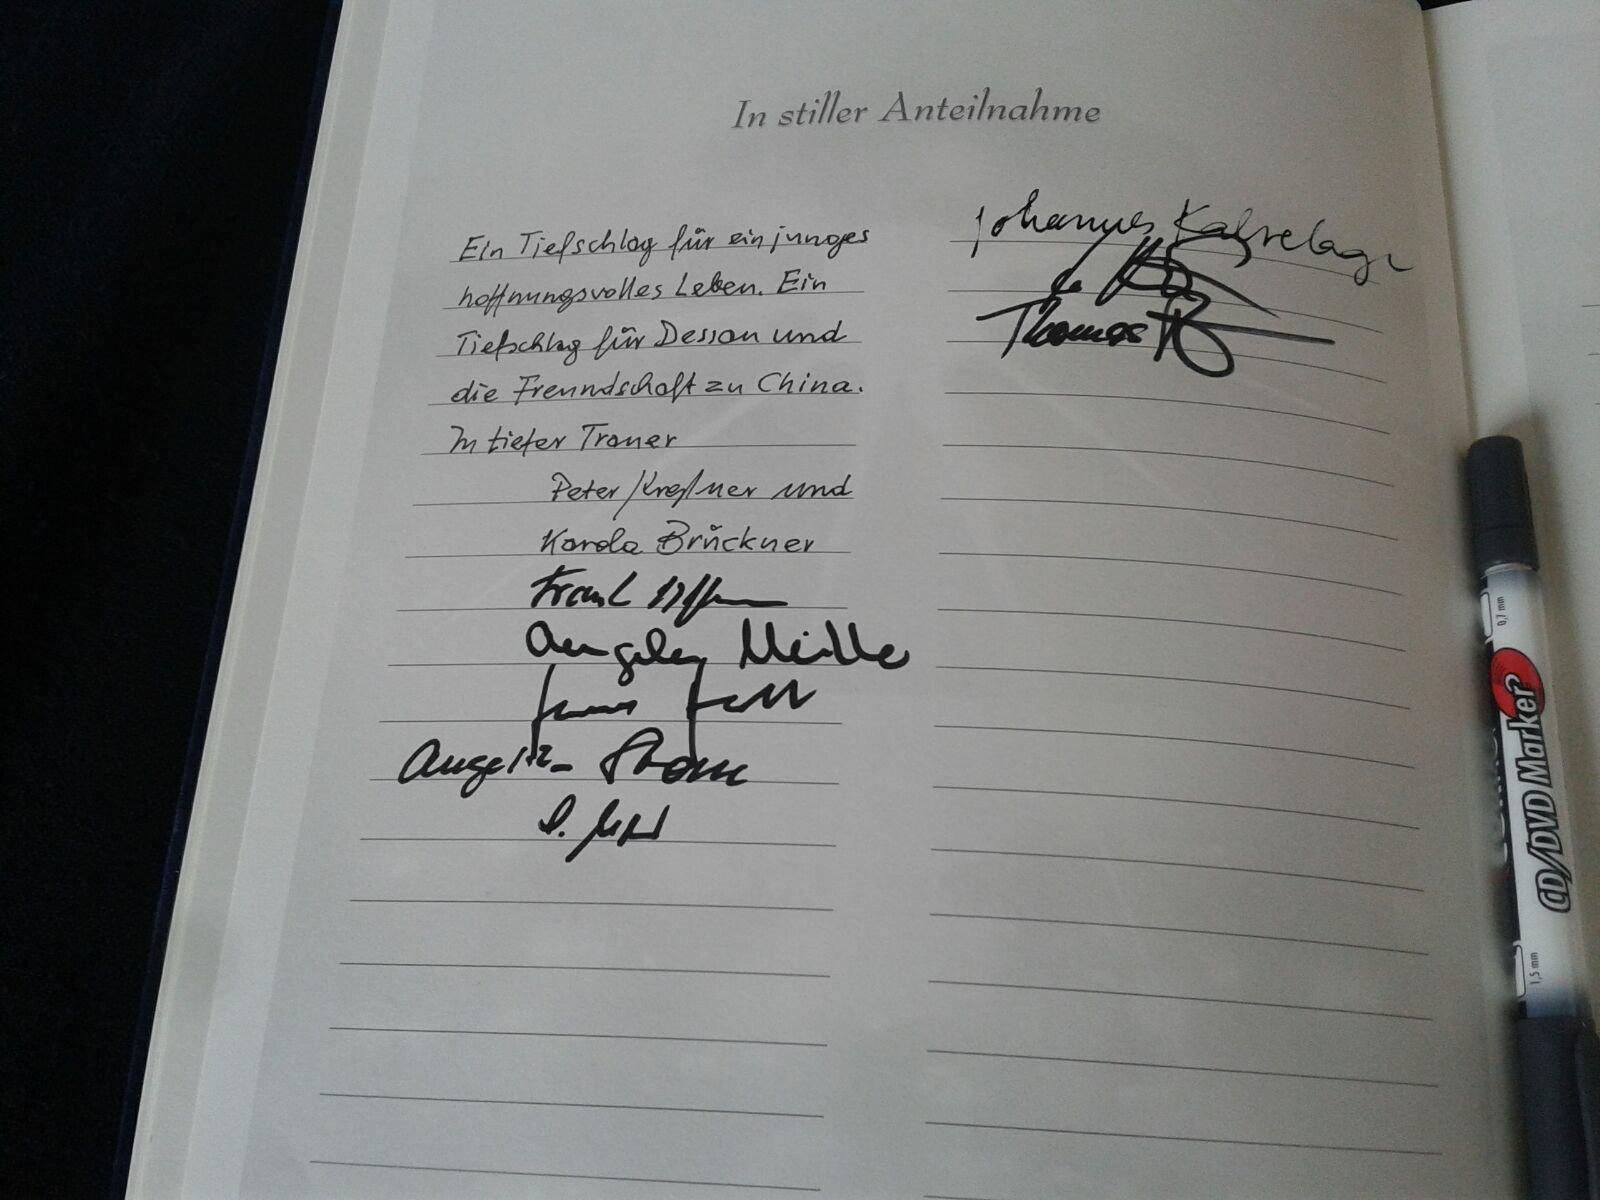 In stiller Anteilnahme
Ein Tiefschlag für ein junges
hoffnungsvolles Leben. Ein
Tiefschlag für Dessau und
die Freundschaft zu China.
In tiefer Trauer
Peter Kreßner und
Karola Brückner
Frank
Angela Müller
Angelika Storm
Johannes
Thomas
0,7 mm
CD/DVD Marker
1,5 mm